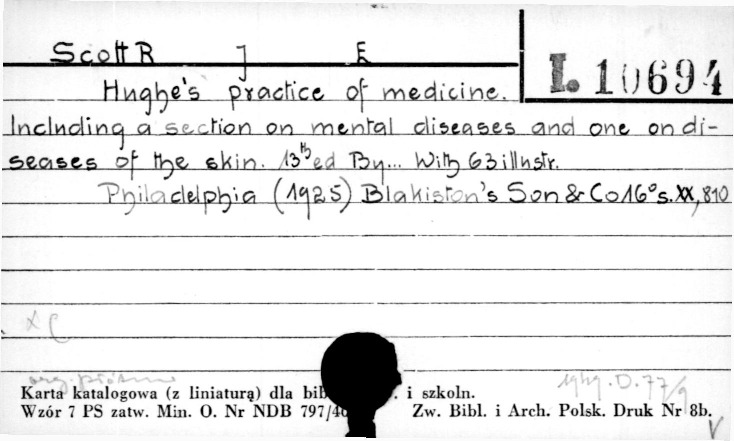 Scott R J E
I. 10694
Hughe's practice of medicine.
Including a section on mental diseases and one on di-
seases of the skin. 13th ed By... With 63 illustr.
Philadelphia (1925) Blakiston's Son & Co 16° s. XX, 810
Karta katalogowa (z liniaturą) dla i szkoln.
Wzór 7 PS zatw. Min. O. Nr NDB Zw. Bibl. i Arch. Polsk. Druk Nr 8b.